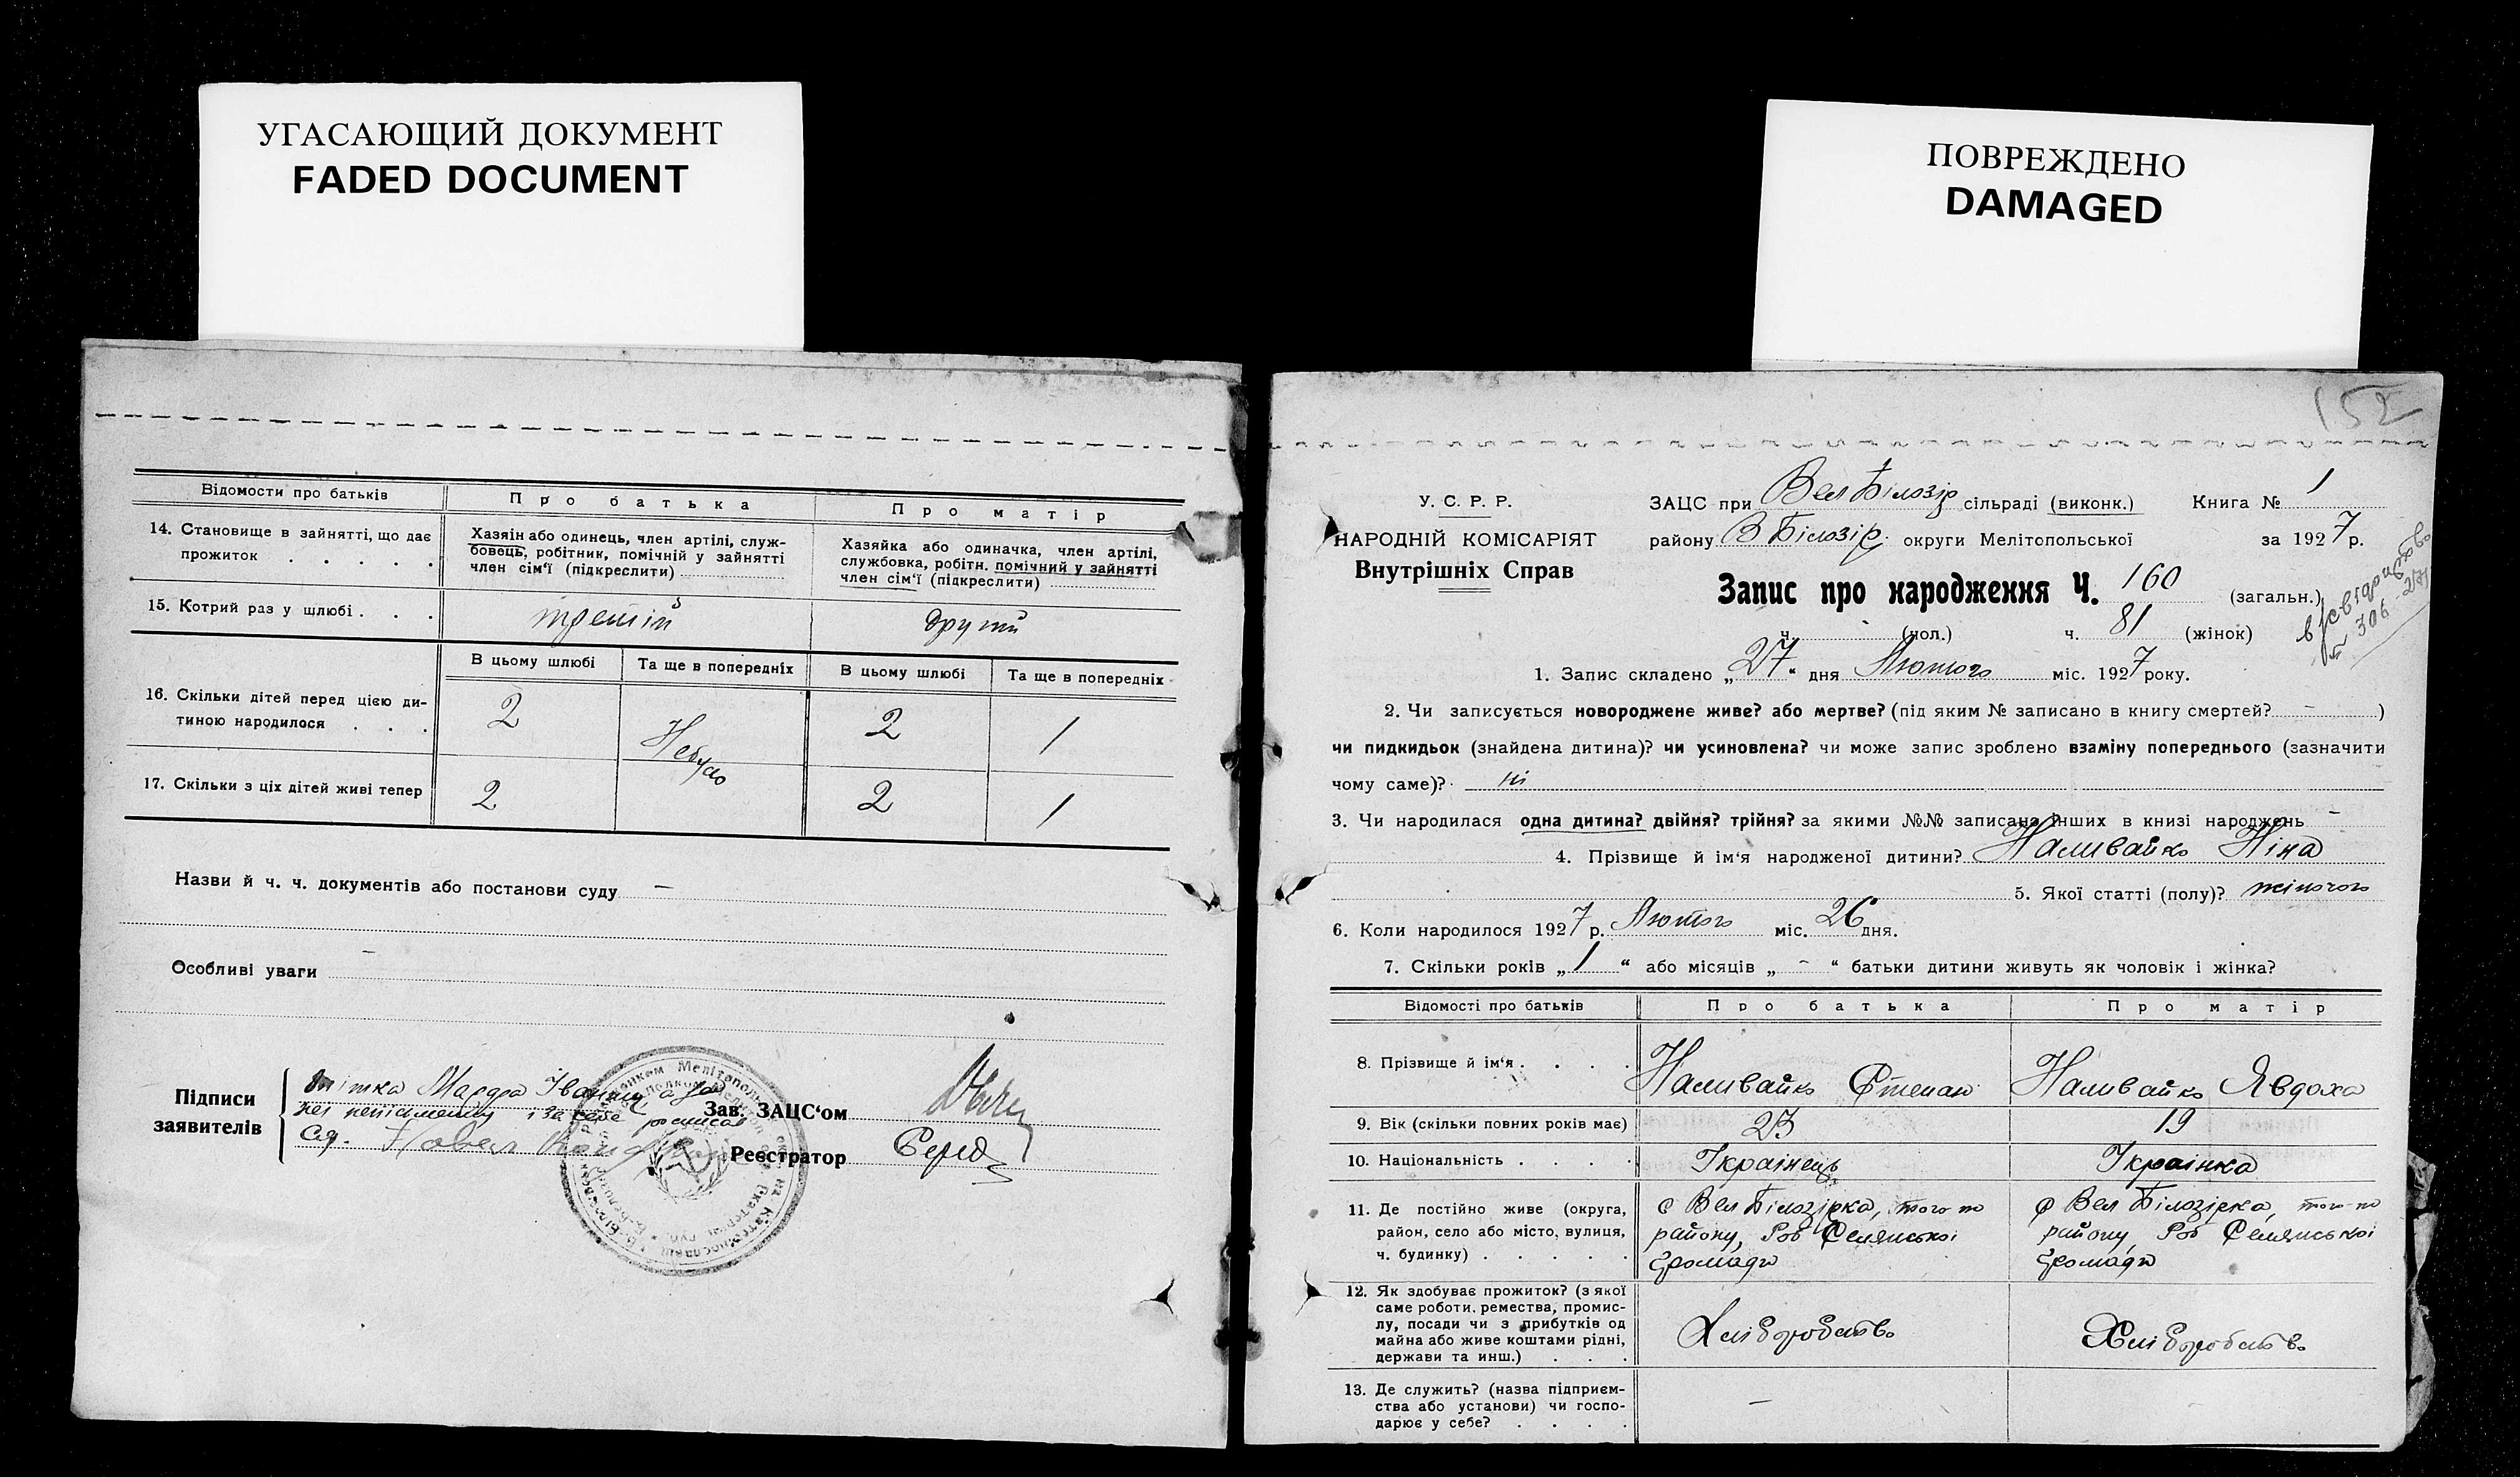 УГАСАЮЩИЙ ДОКУМЕНТ
FADED DOCUMENT
ПОВРЕЖДЕНО
DAMAGED
Відомости про батьків
Про батька
Про матір
14. Становище в зайнятті, що дає
прожиток . . . . .
Хазяін або одинець, член артілі, служ-
бовець, робітник, помічній у зайнятті
член сім'ї (підкреслити)
Хазяйка або одиначка, член артілі,
службовка, робітн. помічний у зайнятті
член сім'ї (підкреслити)
15. Котрий раз у шлюбі . . .
третій
другий
В цьому шлюбі
Та ще в попередніх
В цьому шлюбі
Та ще в попередніх
16. Скільки дітей перед цією ди-
тиною народилося . . .
2
Небуло
2
1
17. Скільки з ціх дітей живі тепер
2
2
1
Назви й ч. ч. документів або постанови суду —
Особливі уваги —
Підписи
заявителів
Іванни, а за
неї неписьменну і за себе росписав
ся.
Зав. ЗАЦС'ом
Реєстратор Серед
152
У. С. Р. Р.
НАРОДНІЙ КОМІСАРІЯТ
Внутрішніх Справ
ЗАЦС при Вел Білозір сільраді (виконк.) Книга № 1
району В Білозір. округи Мелітопольської за 1927 р.
Запис про народження Ч. 160 (загальн.)
ч. (чол.) ч. 81 (жінок)
306
1. Запис складено „27“ дня Лютого міс. 1927 року.
2. Чи записується новороджене живе? або мертве? (під яким № записано в книгу смертей? – )
чи пидкидьок (знайдена дитина)? чи усиновлена? чи може запис зроблено взаміну попереднього (зазначити
чому саме)? ні
3. Чи народилася одна дитина? двійня? трійня? за якими №№ записано інших в книзі народжень –
4. Прізвище й ім'я народженої дитини? Наливайко Ніна
5. Якої статті (полу)? жіночого
6. Коли народилося 1927 р. Лютого міс. 26 дня.
7. Скільки років „1“ або місяців „-“ батьки дитини живуть як чоловік і жінка?
Відомості про батьків
Про батька
Про матір
8. Прізвище й ім'я . . . .
Наливайко Степан
Наливайко Явдоха
9. Вік (скільки повних років має)
23
19
10. Національність . . . .
Українець
Українка
11. Де постійно живе (округа,
район, село або місто, вулиця,
ч. будинку) . . . . .
с Вел Білозірка, того-ж
району, Роб Селянської
громади
с Вел Білозірка, того-ж
району, Роб Селянської
громади
12. Як здобуває прожиток? (з якої
саме роботи, ремества, промис-
лу, посади чи з прибутків од
майна або живе коштами рідні,
держави та инш.) . . .
Хліборобство
Хліборобство
13. Де служить? (назва підприєм-
ства або установи) чи госпо-
дарює у себе? . . . .
–